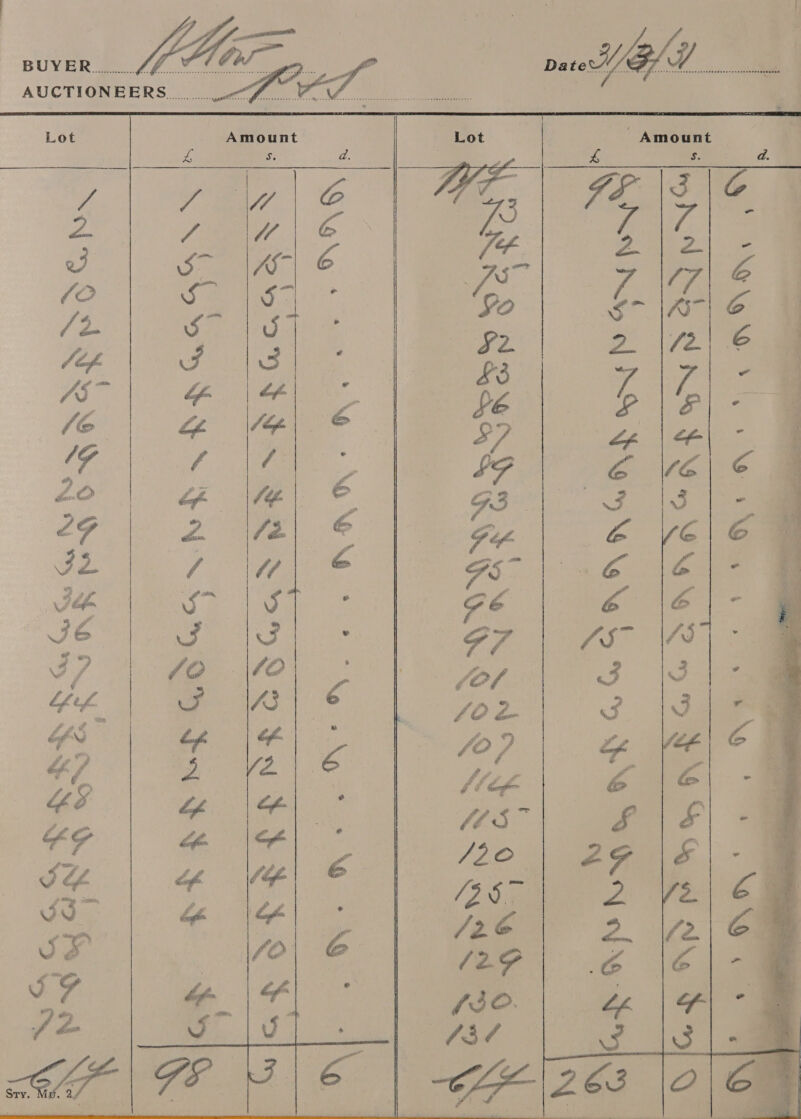 BUYER
Date 31/3/31
AUCTIONEERS
Lot Amount Lot Amount
£ s. d. £ s. d.
1 1 11 6
2 1 11 6
3 5 15 6
10 5 5 -
12 5 5 -
14 3 3 -
15 4 4 -
16 4 14 6
19 1 1 -
20 4 14 6
29 2 12 6
32 1 11 6
34 5 5 -
36 3 3 -
37 10 10 -
44 3 13 6
45 4 4 -
47 2 12 6
48 4 4 -
49 4 4 -
54 4 14 6
55 4 4 -
58 10 6
59 4 4 -
72 5 5 -
C/F 98 3 6
B/F 98 3 6
73 7 7 -
74 2 2 -
75 7 17 6
80 5 15 6
82 2 12 6
83 7 7 -
86 8 8 -
87 4 4 -
89 6 16 6
93 3 3 -
94 6 16 6
95 6 6 -
96 6 6 -
97 15 15 -
101 3 3 -
102 3 3 -
107 4 14 6
114 6 6 -
115 8 8 -
120 29 8 -
125 2 12 6
126 2 12 6
129 6 6 -
130 4 4 -
131 3 3 -
C/F 263 0 6
Sty. Mo. 2